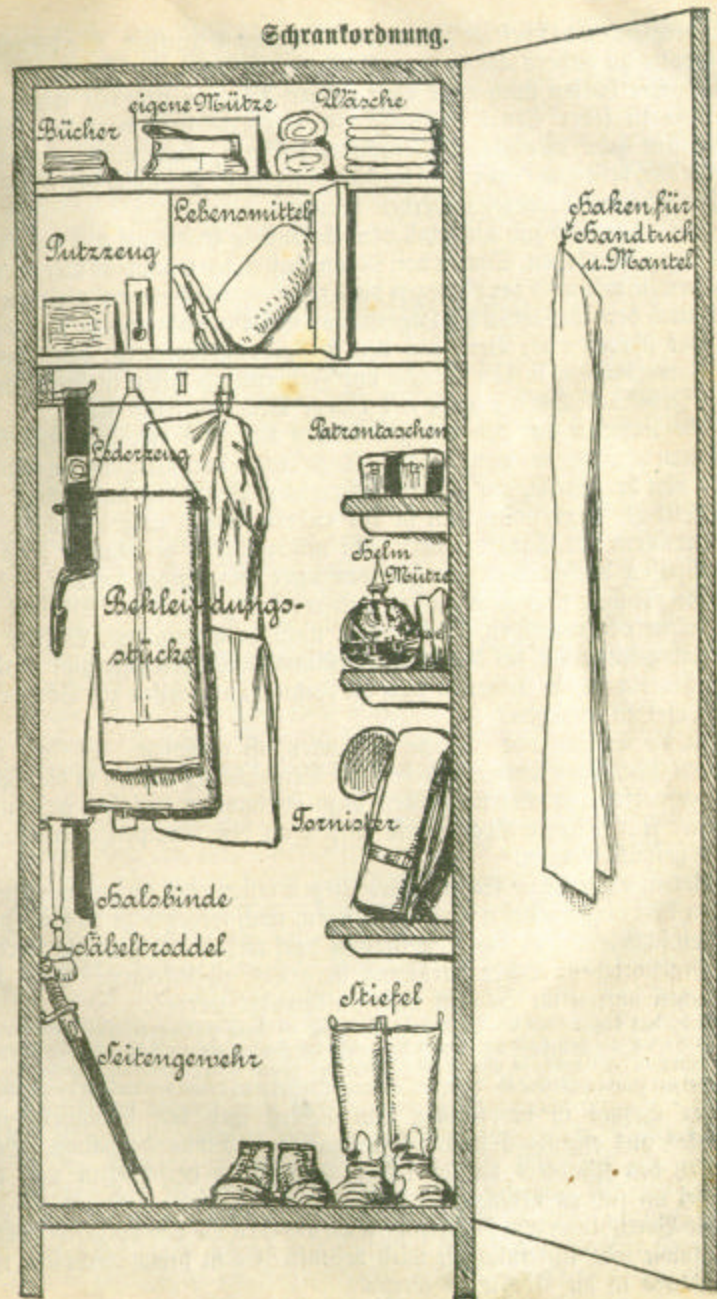 Schrankordnung.
Bücher
eigene Mütze
Wäsche
Putzzeug
Lebensmittel
Haken für
Handtuch
u. Mantel
Lederzeug
Patrontaschen
Helm
Mütze
Beklei-dungs-
stücke
Tornister
Halsbinde
Säbeltroddel
Stiefel
Seitengewehr